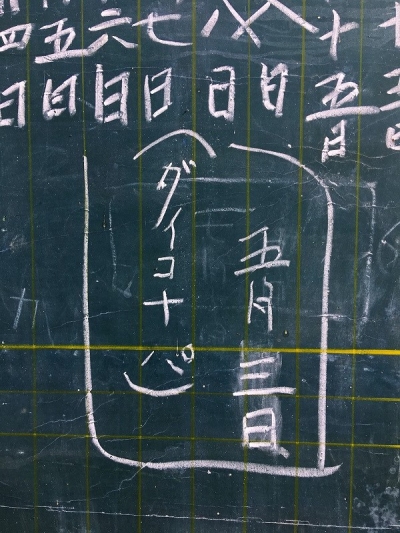 十五日
八日
七日
六日
五日
四日
五月三日
(ダイコナパ)